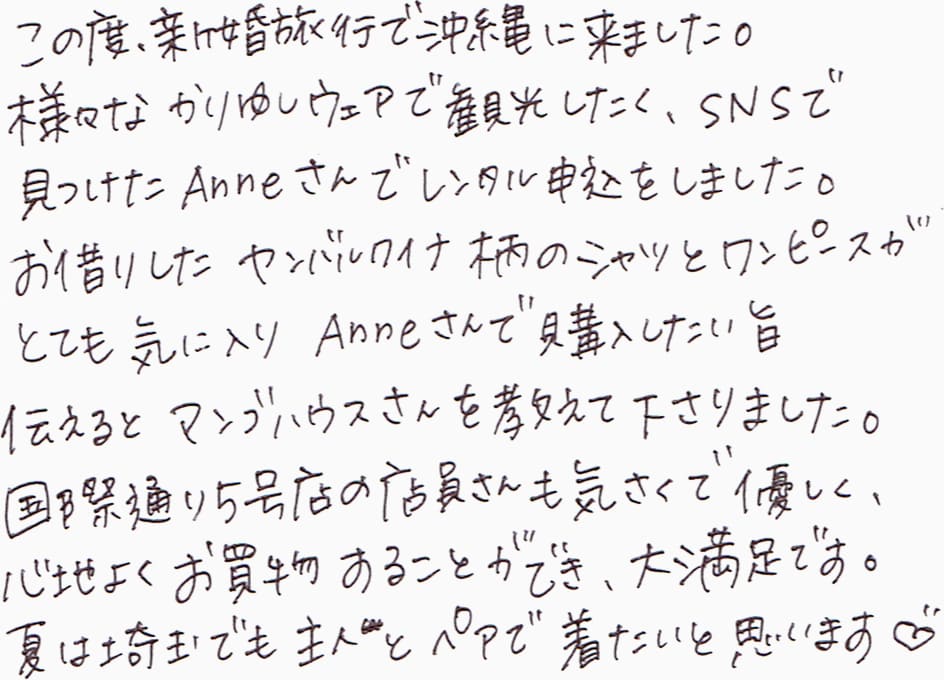 この度、新婚旅行で沖縄に来ました。
様々なかりゆしウェアで観光したく、SNSで
見つけたAnneさんでレンタル申込をしました。
お借りしたヤンバルクイナ柄のシャツとワンピースが
とても気に入りAnneさんで購入したい旨
伝えるとマンゴハウスさんを教えて下さりました。
国際通り5号店の店員さんも気さくで優しく、
心地よくお買物することができ、大満足です。
夏は埼玉でも主人とペアで着たいと思います♡